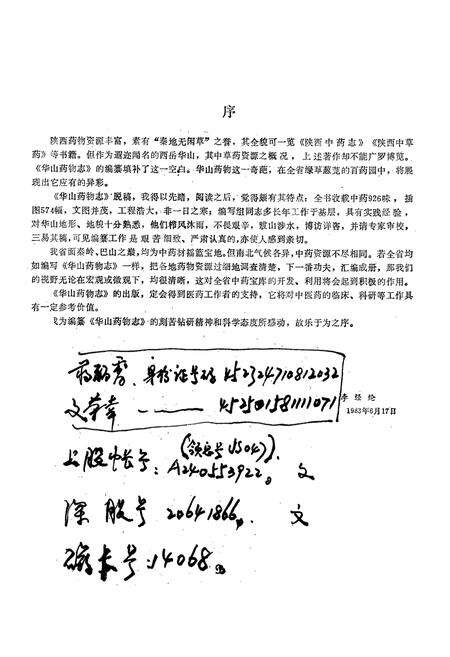 序
陕西药物资源丰富，素有“秦地无闲草”之誉，其全貌可一览《陕西中药志》《陕西中草
药》等书籍。但作为遐迩闻名的西岳华山，其中草药资源之概况，上述著作却不能广罗博览。
《华山药物志》的编纂填补了这一空白。华山药物这一奇葩，在全省绿草葱茏的百药园中，将展
现出它应有的异彩。
《华山药物志》脱稿，我得以先睹，阅读之后，觉得颇有其特点：全书收载中药926味，插
图574幅，文图并茂，工程浩大，非一日之寒；编写组同志多长年工作于基层，具有实践经验，
对华山地形、地貌十分熟悉，他们栉风沐雨，不畏艰辛，跋山涉水，博访详咨，并请专家审校，
三易其稿，可见编纂工作是艰苦细致、严肃认真的，亦使人感到亲切。
我省面秦岭、巴山之巅，均为中药材福蓝宝地。但南北气候各异，中药资源不尽相同。若全省均
如编写《华山药物志》一样，把各地药物资源过细地调查清楚，下一番功夫，汇编成册，那我们
的视野无论在宏观或微观下，均很清晰，这对全省中药宝库的开发、利用将会起到积极的作用。
《华山药物志》的出版，定会得到医药工作者的支持，它将对中医药的临床、科研等工作具
有一定参考价值。
我为编纂《华山药物志》的刻苦钻研精神和科学态度所感动，故乐于为之序。
李经纶
1983年6月17日
身份证号码 452324710812032
文荣幸 —— 452501581111071
(领序号JS04)
上股帐号：A240553922。文
深股号 20641866。文
号：14068。